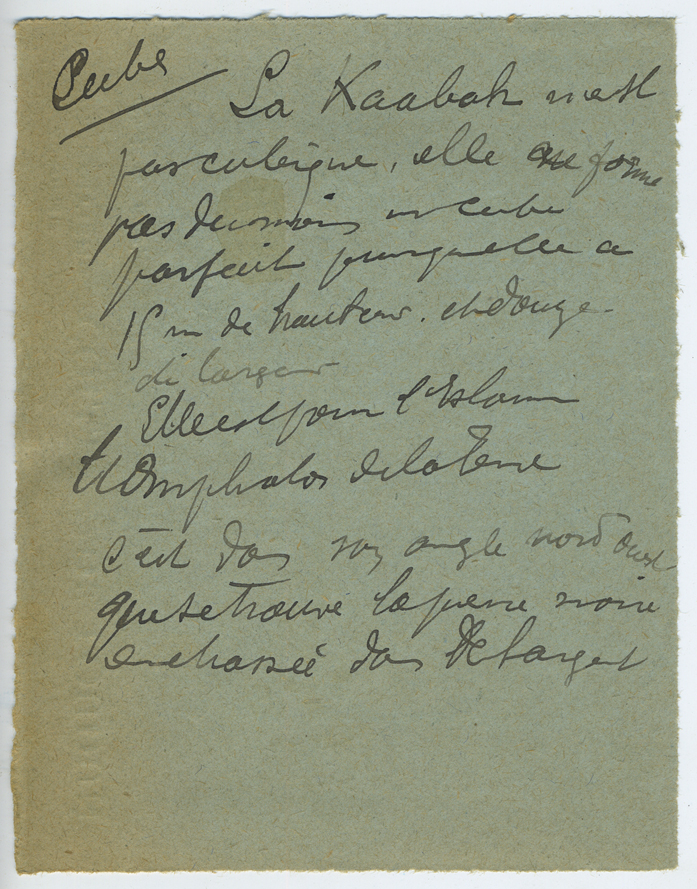 Cube
La Kaabah n'est
pas cubique, elle ne forme
pas du moins un cube
parfait puisqu'elle a
15 m de hauteur. et douze.
de largeur
Elle est pour l'Islam
l'Omphalos de la Terre
c'est dans son angle nord ouest
que se trouve la pierre noire
enchassée dans de l'argent